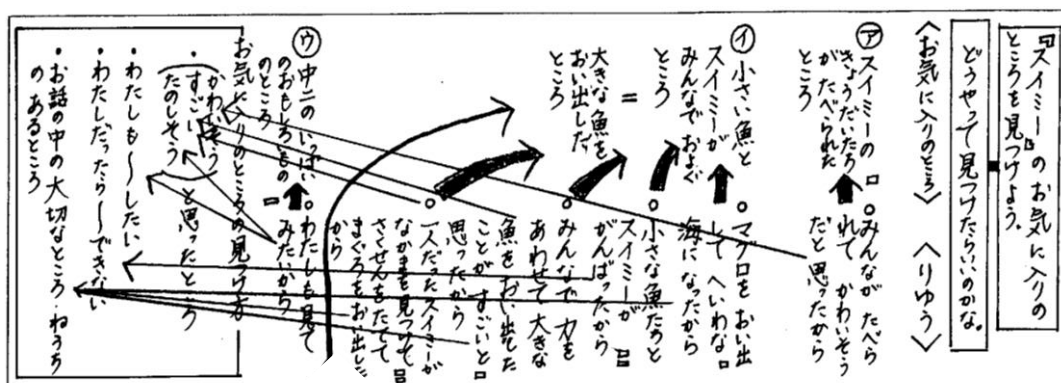 『スイミー』のお気に入りの
ところを見つけよう。
どうやって見つけたらいいのかな。
〈お気に入りのところ〉
〈りゆう〉
㋐スイミーの
きょうだいたち
がたべられた
ところ
みんなが たべら
れて かわいそう
だと思ったから
㋑小さい魚と
スイミーが
みんなで およぐ
ところ
=
大きな魚を
おい出した
ところ
マグロを おい出
して へいわな
海になったから
小さな魚たちと
スイミーが
がんばったから
みんなで 力を
あわせて 大きな
魚を おい出した
ことが すごいと
思ったから
一人だったスイミーが
なかまを見つけて
さくせんをたてて
まぐろをおい出した
から
㋒中二の いっぱい
のおもしろいもの
のところ
わたしも見て
みたいから
お気に入りのところの見つけ方
・(かわいそう
すごい
たのしそう)と思ったところ
・わたしも〜したい
・わたしだったら〜できない
・お話の中の大切なところ・ねうち
のあるところ